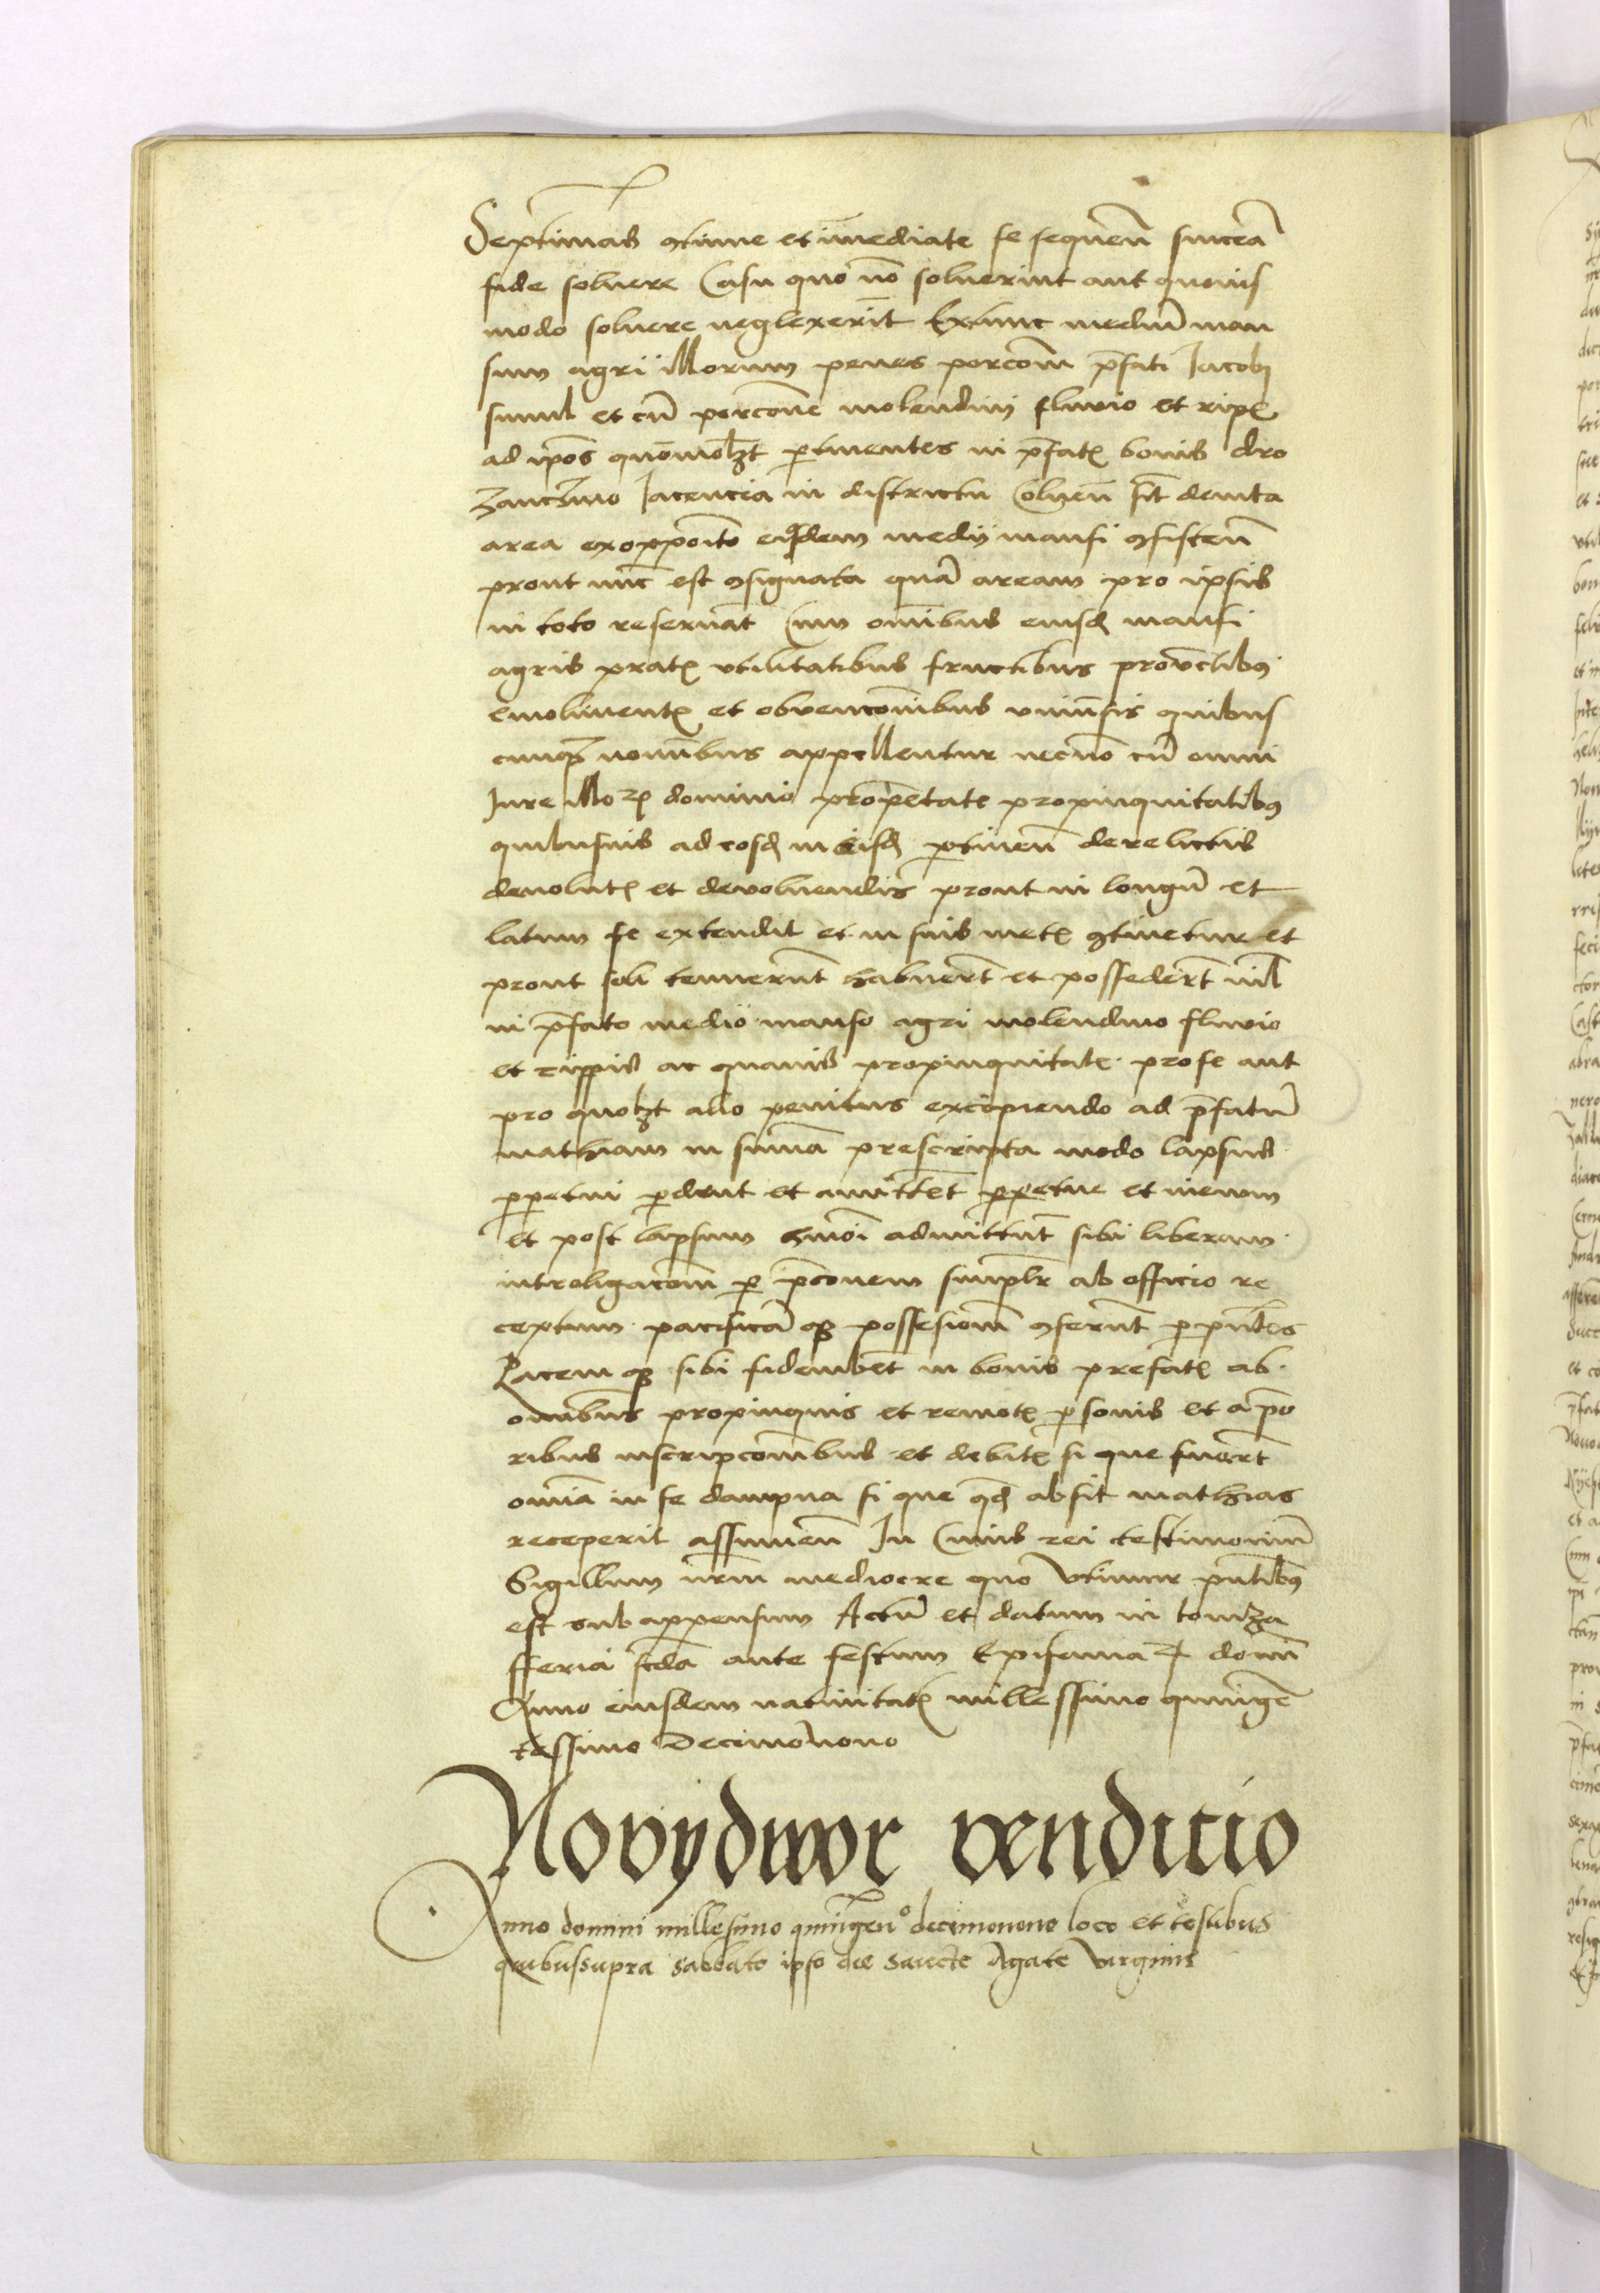 Septimas ꝯtinue et im̄ediate se sequen̄ sincera
fide soluere Casu quo nō soluerint aut quouis
modo soluere neglexerīt Extunc mediū man
sum agri illorum penes porcom̄ p̄fati Jacobi
simul et cū porcone molendini fluuio et ripꝭ
ad ip̄os quomolꝫt ꝑtinentes in p̄fatꝭ bonis dro
zanczino Jacencia in districtu Colnen̄ s̄t deuita
area exopp̄oito eiusdem medij mansi ꝯsisten̄
prout nūc est ꝯsignata quā aream pro ipsis
in toto reseruāt Cum om̄ibus eiusd mansi
agris pratꝭ vtilitatibus fructibus prouētibꝯ
emolimentꝭ et obuencom̄ibus vniūsis quibus
cumqꝫ nominibus appellentur necnō cū omni
Jure illoꝝ dominio prop̄etate propinquitatibꝯ
quibusuis ad eosd in eisd ꝑtinen̄ derelictis
deuolutꝭ et deuoluendis prout in longū et
latum se extendit et in suis metꝭ ꝯtinetur et
prout soli tenuerūt habuerūt et possederūt nil
in p̄fato medio manso agri molendino fluuio
et rippis ac quauis propinquitatē pro se aut
pro quolꝫt alio penitus excipiendo ad p̄fatū
mathiam in sum̄a prescripta modo lapsus
ꝑpetui ꝑdent et amittēt ꝑpetue et in euum
et post lapsum hmōi admittūt sibi liberam
introligacom̄ ꝑ p̄conem simplr ab officio re
ceptum pacificā qꝫ possesionem ꝯferūt ꝑ pn̄tes
Pacem qꝫ sibi fideiubēt in bonis prefatꝭ ab
omībus propinquis et remotꝭ ꝑsonis et a p̄o
ribus inscripcom̄ibus et debitꝭ si que fuerīt
omīa in se dampna si que qd absit mathias
receperit assumen̄ In Cuius rei testimoniū
Sigillum nr̄m mediocre quo Vtimur pn̄tibꝯ
est subappensum Actū et datum in lomza
fferia scd̄a ante festum Epifaniaꝝ domī
Anno eiusdem natiuitatꝭ millessimo quinge
tessimo Decimonono
Novydwor vendicio
Anno domini millesimo quingenº decimonono loco et testibus
quibussupra Sabbato ipso die Sancte Agate Virginis